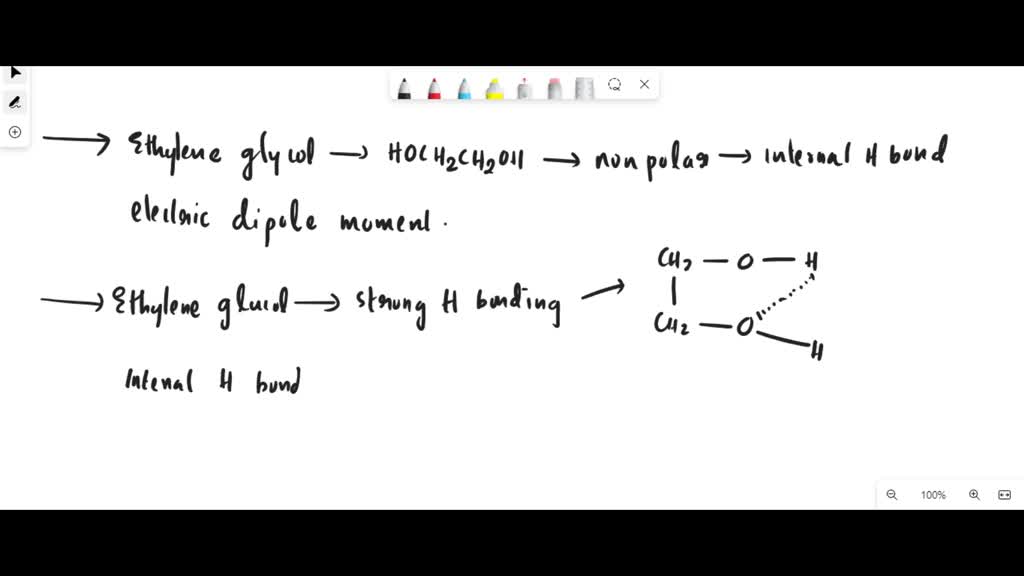 → Ethylene glycol → HOCH2CH2OH → non polar → internal H bond
electric dipole moment.
CH2 — O — H
→ Ethylene glucol → strong H bonding →
CH2 — O
H
Intenal H bond
100%